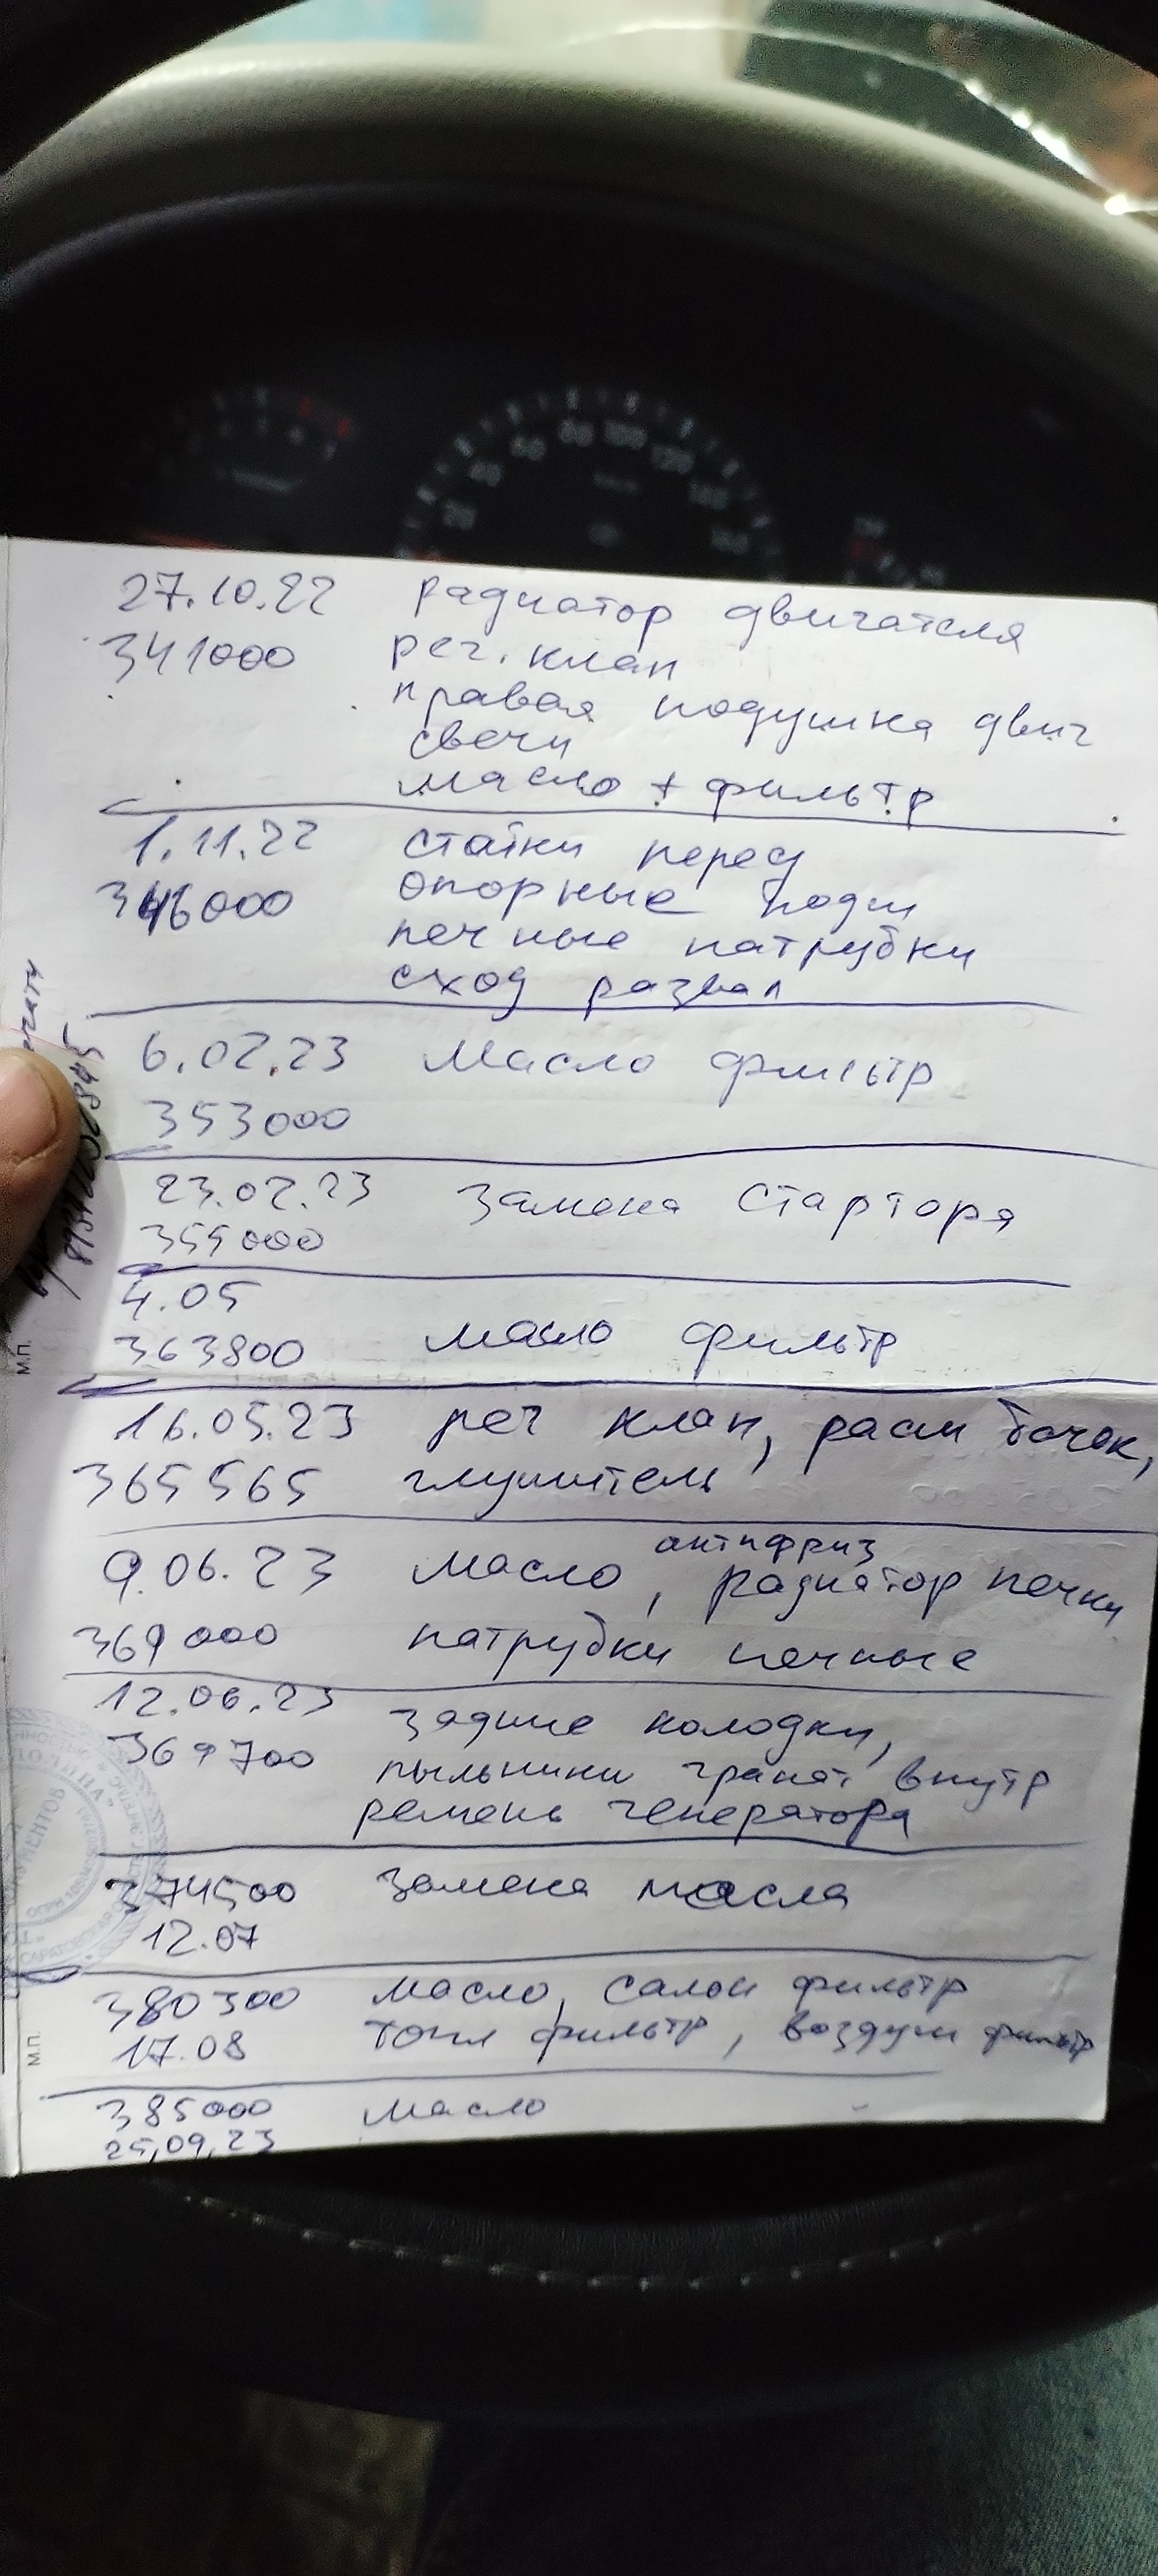 27.10.22 радиатор двигателя
341000 рег. клап
правая подушка двиг
свечи
масло + фильтр
1.11.22 стойки перед
346000 опорные подш
печные патрубки
сход развал
6.02.23 Масло фильтр
353000
23.02.23 Замена Стартора
355000
4.05
363800 масло фильтр
16.05.23 рег клап, расш бочек,
365565 глушитель
антифриз
9.06.23 масло, радиатор печки
369000 патрубки печные
12.06.23 задние колодки,
369700 пыльники гранат внутр
ремень генератора
374500 Замена масла
12.07
380300 масло, салон фильтр
17.08 топл фильтр, воздуш фильтр
385000 масло
25,09,23
М.П.
М.П.